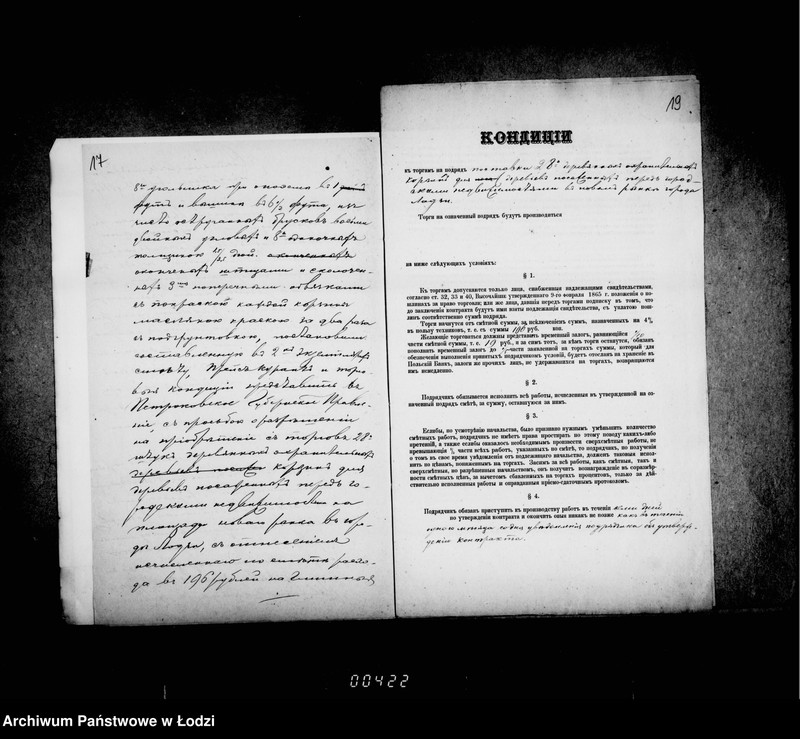 17
8ми дюймика при
фута и вышина въ 6½ фута, изъ
числа
двойною
толщиною дюй.
поперечными обвязками
съ покраской каждой корзины
масляною краскою за два раза
съ подгрунтовкой, постановили:
составленную въ 2хъ экземплярахъ
смѣту, Прейсъ курантъ и торго-
выя Кондиціи представить въ
Петроковское Губернское Правле-
ніе съ просьбою о разрѣшеніи
на пріобрѣтеніе съ торговъ 28ми
штукъ деревянныхъ охранительныхъ
корзинъ для
деревьевъ посаженныхъ передъ го-
родскими недвижимостями на
площади новаго рынка въ горо-
дѣ Лодзи, съ отнесеніемъ
исчисленнаго по смѣтѣ расхо-
да въ 196 рублей на
19
КОНДИЦІИ
къ торгамъ на подрядъ поставки 28ми деревянныхъ охранительныхъ
корзинъ для деревьевъ посаженныхъ передъ город-
скими недвижимостями въ новомъ рынкѣ города
Лодзи.
Торги на означенный подрядъ будутъ производиться
на ниже слѣдующихъ условіяхъ:
§ 1.
Къ торгамъ допускаются только лица, снабженныя надлежащими свидѣтельствами,
согласно ст. 32, 33 и 40, Высочайше утвержденнаго 9-го февраля 1865 г. положенія о по-
шлинахъ за право торговли; или же лица, давшія передъ торгами подписку въ томъ, что
до заключенія контракта будутъ ими взяты подлежащія свидѣтельства, съ уплатою пош-
линъ соотвѣтственно суммѣ подряда.
Торги начнутся отъ смѣтной суммы, за исключеніемъ суммъ, назначенныхъ на 4%
въ пользу техниковъ, т. е. съ суммы руб. коп.
Желающіе торговаться должны представить временный залогъ, равняющійся 1/10
части смѣтной суммы, т. е. 19 руб., а за симъ тотъ, за кѣмъ торги останутся, обязанъ
пополнить временный залогъ до части заявленной на торгахъ суммы, который для
обезпеченія выполненія принятыхъ подрядчикомъ условій, будетъ отосланъ на храненіе въ
Польскій Банкъ, залоги же прочихъ лицъ, не удержавшихся на торгахъ, возвращаются
имъ немедленно.
§ 2.
Подрядчикъ обязывается исполнить всѣ работы, исчисленныя въ утвержденной на со-
наченный подрядъ смѣтѣ, за сумму, оставшуюся за нимъ.
§ 3.
Еслибы, по усмотрѣнію начальства, было признано нужнымъ уменьшить количество
смѣтныхъ работъ, подрядчикъ не имѣетъ права простирать по этому поводу какихъ-либо
претензій, а также еслибы оказалось необходимымъ произвести сверхсмѣтныя работы, не
превышающія части всѣхъ работъ, указанныхъ по смѣтѣ, то подрядчикъ, по полученіи
о томъ въ свое время увѣдомленія отъ подлежащаго начальства, долженъ таковыя испол-
нить по цѣнамъ, пониженнымъ на торгахъ. Засимъ за всѣ работы, какъ смѣтныя, такъ и
сверхсмѣтныя, но разрѣшенныя начальствомъ, онъ получитъ вознагражденіе въ соразмѣр-
ности смѣтныхъ цѣнъ, за вычетомъ сбавленныхъ на торгахъ процентовъ, только за дѣй-
ствительно исполненныя работы и оправданныя пріемо-сдаточнымъ протоколомъ.
§ 4.
Подрядчикъ обязанъ приступить къ производству работъ въ теченіи дней
по утвержденіи контракта и окончить оныя никакъ не позже какъ въ теченіи
одного мѣсяца со дня увѣдомленія подрядчика объ утверж-
деніи контракта.
00422
Archiwum Państwowe w Łodzi